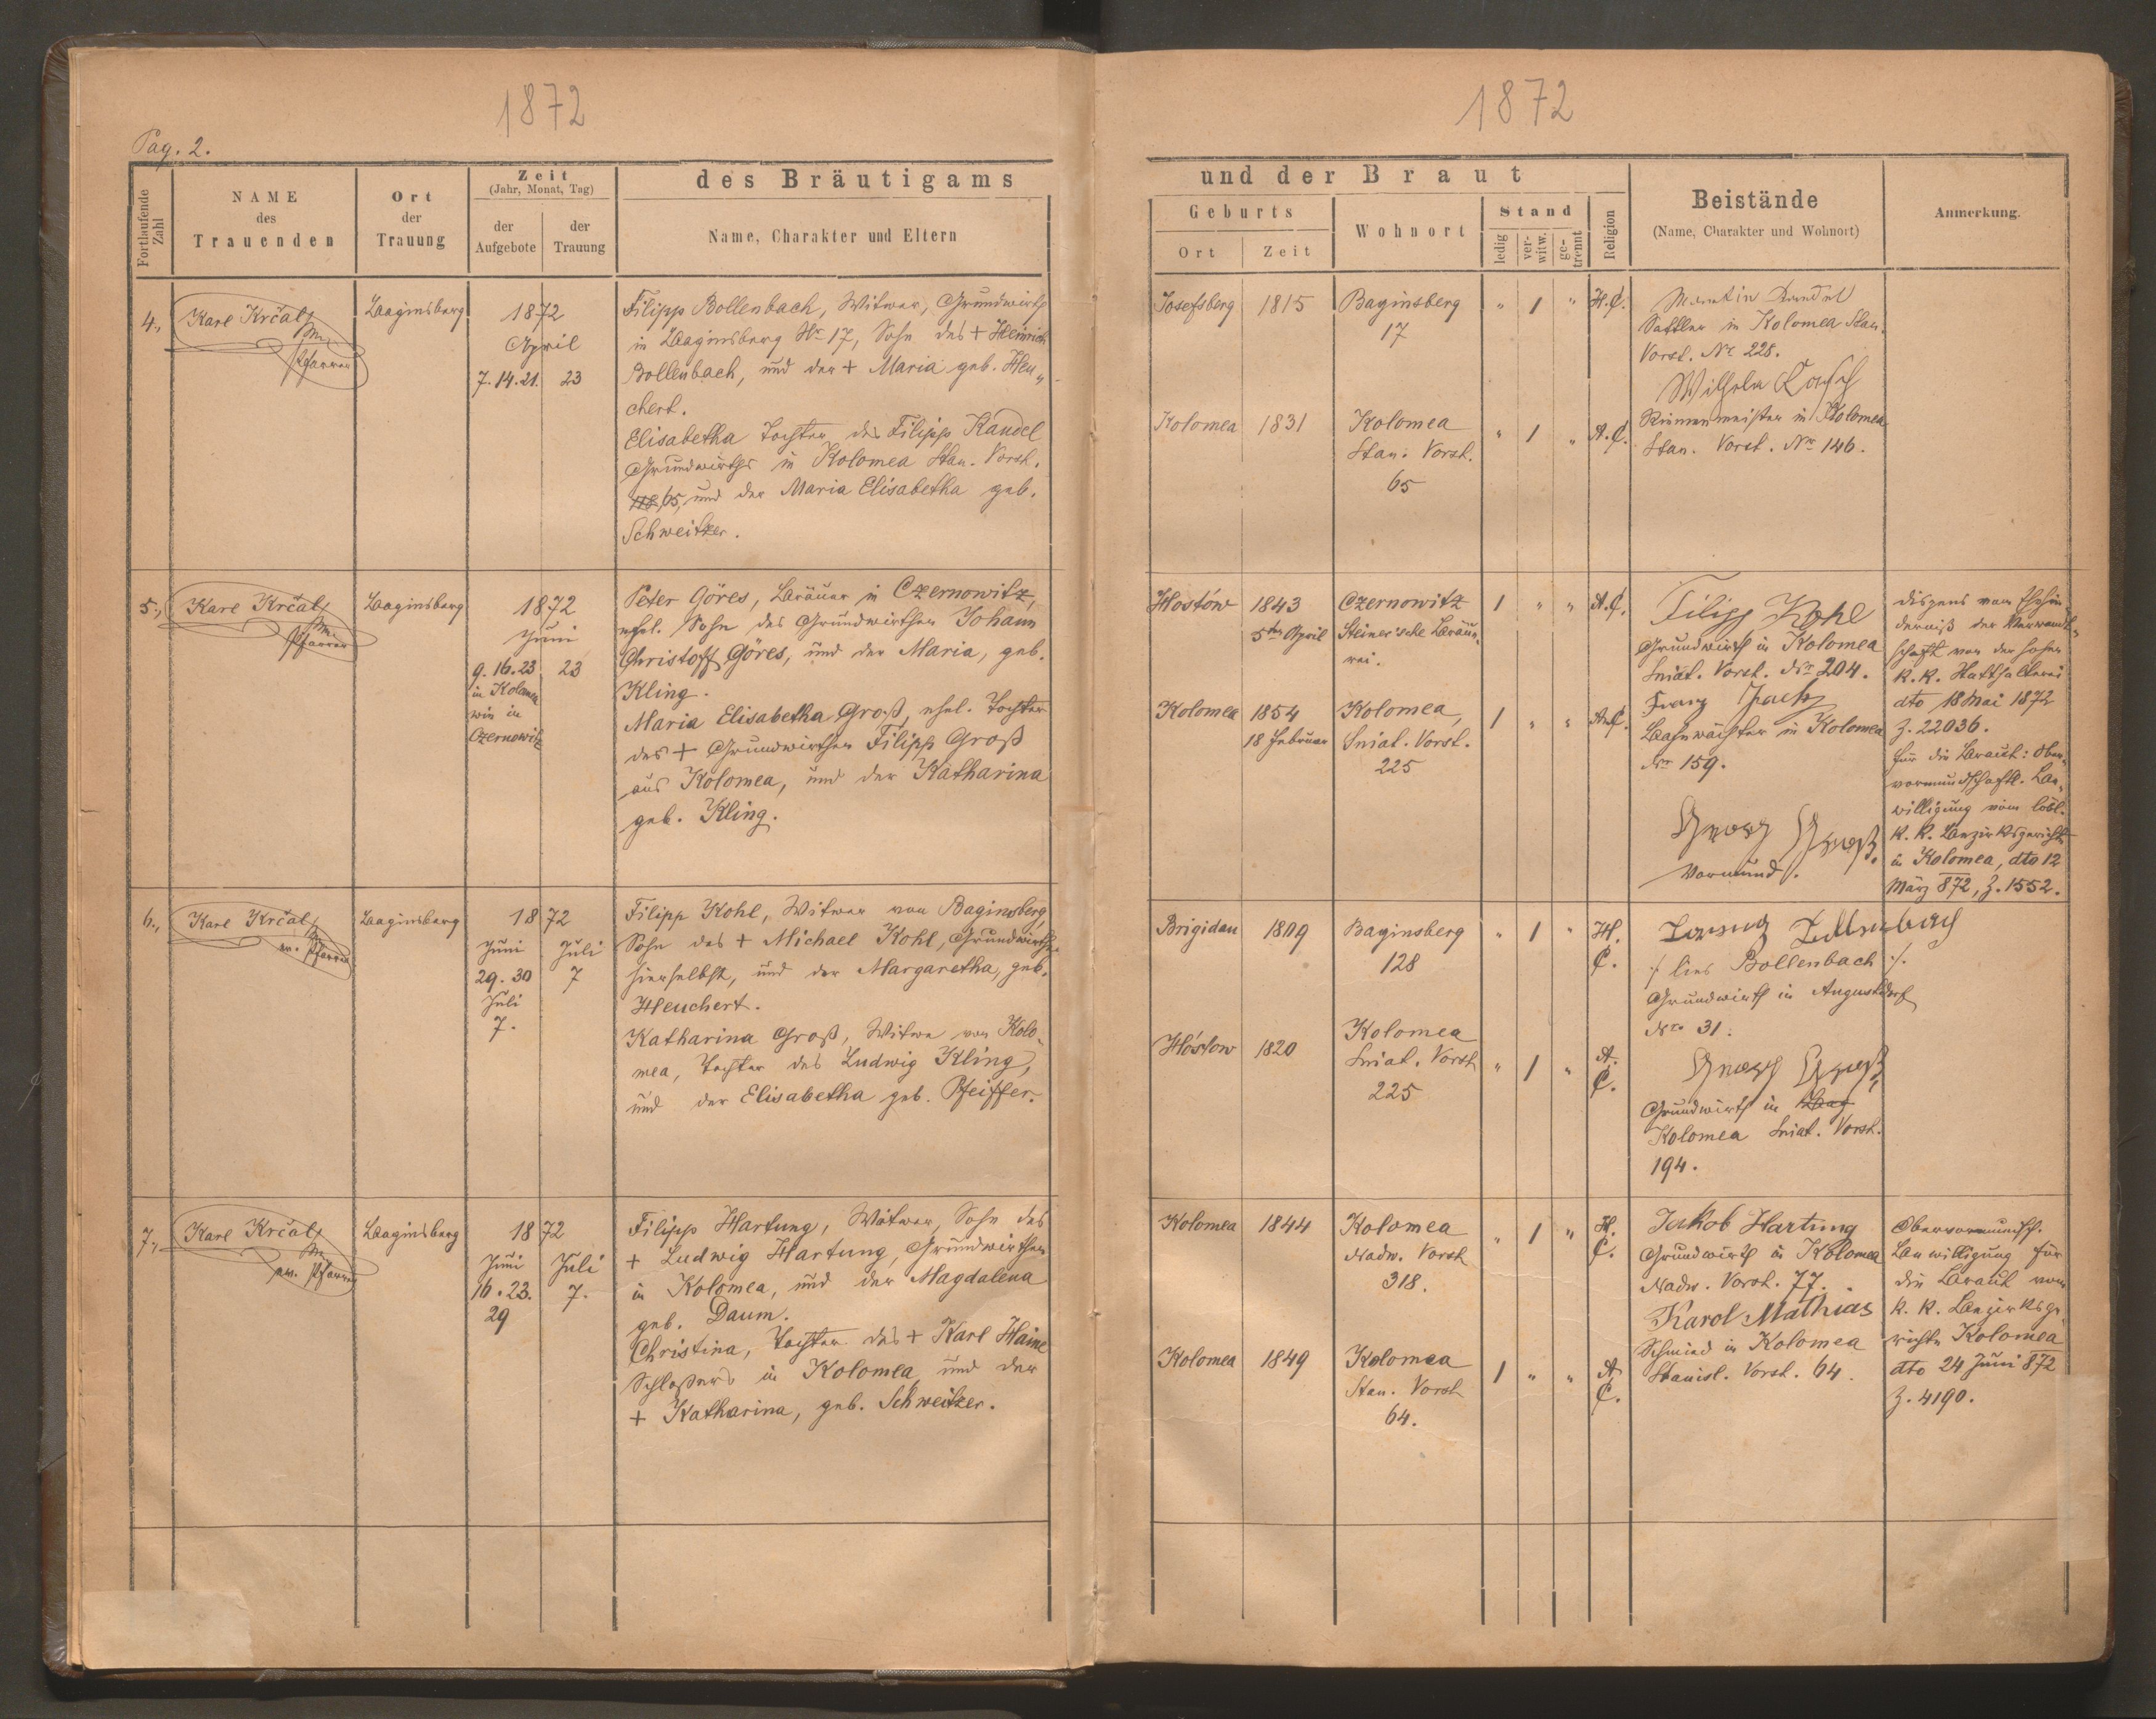 1872
Pag. 2.
Fortlaufende Zahl
NAME
des
Trauenden
Ort
der
Trauung
Zeit
(Jahr, Monat, Tag)
der
Aufgebote
der
Trauung
des Bräutigams
Name, Charakter und Eltern
4.,
Karl Krčal
Pfarrer
Baginsberg
1872
April
7. 14. 21. 23
Filipp Bollenbach, Witwer, Grundwirth
in Baginsberg Nr 17, Sohn des + Heinrich
Bollenbach, und der + Maria geb. Heu„
chert.
Elisabetha Tochter des Filipp Kandel
Grundwirths in Kolomea Stan. Vorst.
65, und der Maria Elisabetha geb.
Schweitzer.
5.,
Karl Krčal
Pfarrer
Baginsberg
1872
Juni
9. 16. 23. 23
in Kolomea
wie in
Czernowitz
Peter Göres, Bräuer in Czernowitz,
ehel. Sohn des Grundwirthen Johann
Christoff Göres, und der Maria, geb.
Kling.
Maria Elisabetha Groß, ehel. Tochter
des + Grundwirthen Filipp Groß
aus Kolomea, und der Katharina
geb. Kling.
6.,
Karl Krčal
ev. Pfarrer
Baginsberg
1872
Juni Juli
29. 30 7
Juli
7.
Filipp Kohl, Witwer von Baginsberg,
Sohn des + Michael Kohl, Grundwirths
hierselbst, und der Margaretha, geb.
Heuchert.
Katharina Groß, Witwe von Kolo„
mea, Tochter des Ludwig Kling,
und der Elisabetha geb. Pfeiffer.
7.,
Karl Krčal
ev. Pfarrer
Baginsberg
1872
Juni Juli
16. 23. 7.
29
Filipp Hartung, Witwer, Sohn des
+ Ludwig Hartung, Grundwirthen
in Kolomea, und der Magdalena
geb. Daum.
Christina, Tochter des + Karl Haine
Schloßers in Kolomea, und der
+ Katharina, geb. Schweitzer.
1872
und der Braut
Geburts
Ort
Zeit
Wohnort
Stand
ledig
ver-
witw.
ge-
trennt
Religion
Beistände
(Name, Charakter und Wohnort)
Anmerkung.
Josefsberg 1815 Baginsberg „ 1 „ H.C.
17
Martin
Sattler in Kolomea Stan.
Vorst. Nr 228.
Wilhelm
Kolomea 1831 Kolomea „ 1 „ A.C.
Stan. Vorst.
65
Riemermeister in Kolomea
Stan. Vorst. Nr 146.
Hostów 1843 Czernowitz 1 „ „ A.C.
5ten April Steiner'sche Bräue„
rei.
Filipp Kohl
Grundwirth in Kolomea
Sniat. Vorst. Nr 204.
Kolomea 1854 Kolomea, 1 „ „ A.C.
18 Februar Sniat. Vorst.
225
Franz
Bahnwächter in Kolomea
Nr 159.
Groß
Vormund.
Dispens vom Ehehin„
derniß der Verwandt„
schaft von der hohen
k. k. Statthalterei
dto 18 Mai 1872
Z. 22036.
Für die Braut: Ober„
vormundschaftl. Be„
willigung vom löbl.
k. k. Bezirksgericht
in Kolomea, dto 12
März 872, Z. 1552.
Brigidau 1809 Baginsberg „ 1 „ H.
128 C.
Bollenbach
:/ lies Bollenbach :/.
Grundwirth in Augustdorf
Nro 31.
Hóstow 1820 Kolomea „ 1 „ A.
Sniat. Vorst. C.
225
Groß
Grundwirth in Bag
Kolomea Sniat. Vorst.
194.
Kolomea 1844 Kolomea „ 1 „ H.
Nadw. Vorst. C.
318.
Jakob Hartung
Grundwirth in Kolomea
Nadw. Vorst. 77.
Karol Mathias
Schmied in Kolomea
Stanisl. Vorst. 64.
Kolomea 1849 Kolomea 1 „ „ A.
Stan. Vorst. C.
64.
Obervormundsch.
Bewilligung für
die Braut vom
k. k. Bezirksge„
richte Kolomea
dto 24 Juni 872
Z. 4190.